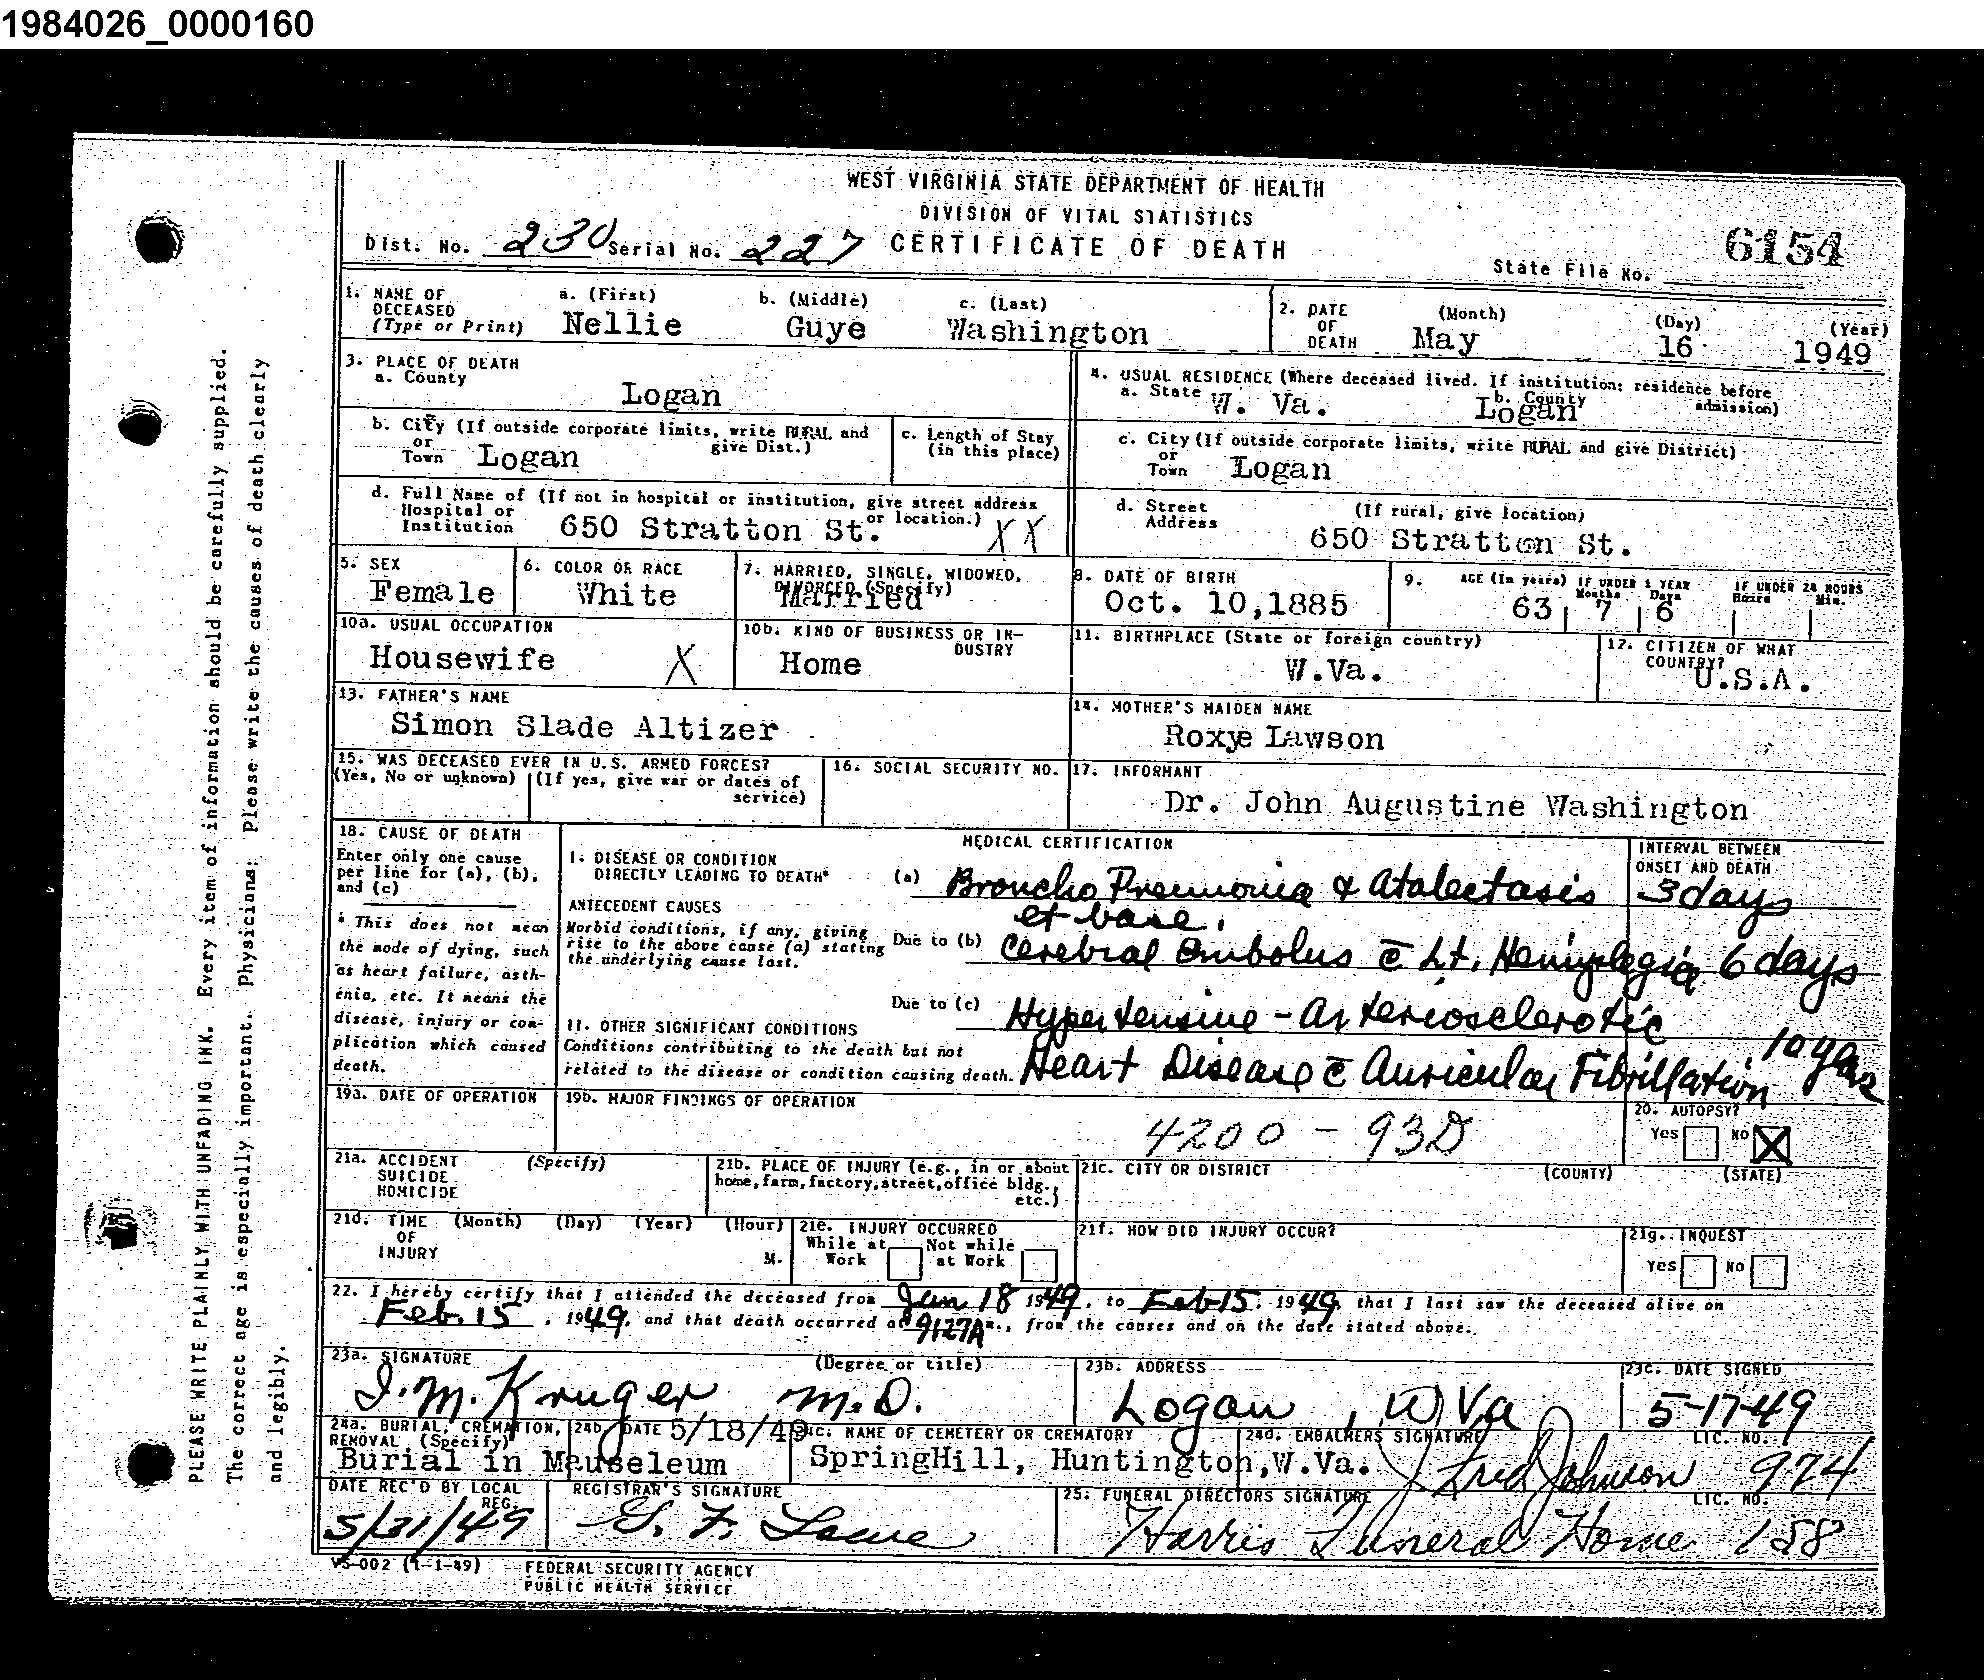 1984026_0000160
WEST VIRGINIA STATE DEPARTMENT OF HEALTH
DIVISION OF VITAL STATISTICS
Dist. No. 230 Serial No. 227 CERTIFICATE OF DEATH
State File No. 6154
1. NAME OF DECEASED (Type or Print) a. (First) b. (Middle) c. (Last)
Nellie Guye Washington
2. DATE OF DEATH (Month) (Day) (Year)
May 16 1949
3. PLACE OF DEATH
a. County
Logan
4. USUAL RESIDENCE (Where deceased lived. If institution: residence before admission)
a. State W. Va. b. County Logan
b. City (If outside corporate limits, write RURAL and give Dist.)
or Town Logan
c. Length of Stay (in this place)
c. City (If outside corporate limits, write RURAL and give District)
or Town Logan
d. Full Name of (If not in hospital or institution, give street address or location.)
Hospital or Institution 650 Stratton St. XX
d. Street Address (If rural, give location)
650 Stratton St.
5. SEX
Female
6. COLOR OR RACE
White
7. MARRIED, SINGLE, WIDOWED, DIVORCED (Specify)
Married
8. DATE OF BIRTH
Oct. 10,1885
9. AGE (In years) IF UNDER 1 YEAR Months Days IF UNDER 24 HOURS Hours Min.
63 7 6
10a. USUAL OCCUPATION
Housewife X
10b. KIND OF BUSINESS OR INDUSTRY
Home
11. BIRTHPLACE (State or foreign country)
W.Va.
12. CITIZEN OF WHAT COUNTRY?
U.S.A.
13. FATHER'S NAME
Simon Slade Altizer
14. MOTHER'S MAIDEN NAME
Roxye Lawson
15. WAS DECEASED EVER IN U.S. ARMED FORCES?
(Yes, No or unknown) (If yes, give war or dates of service)
16. SOCIAL SECURITY NO.
17. INFORMANT
Dr. John Augustine Washington
18. CAUSE OF DEATH
Enter only one cause per line for (a), (b), and (c)
* This does not mean the mode of dying, such as heart failure, asthenia, etc. It means the disease, injury or complication which caused death.
MEDICAL CERTIFICATION
INTERVAL BETWEEN ONSET AND DEATH
I. DISEASE OR CONDITION DIRECTLY LEADING TO DEATH*
(a) Broncho Pneumonia & Atalectasis 3 days
et base.
ANTECEDENT CAUSES
Morbid conditions, if any, giving rise to the above cause (a) stating the underlying cause last.
Due to (b) Cerebral Embolus c̄ Lt. Hemiplegia 6 days
Due to (c) Hypertensive - Arteriosclerotic
Heart Disease c̄ Auricular Fibrillation. 10 yrs
II. OTHER SIGNIFICANT CONDITIONS
Conditions contributing to the death but not related to the disease or condition causing death.
19a. DATE OF OPERATION
19b. MAJOR FINDINGS OF OPERATION
4200 - 93D
20. AUTOPSY?
Yes No X
21a. ACCIDENT SUICIDE HOMICIDE (Specify)
21b. PLACE OF INJURY (e.g., in or about home, farm, factory, street, office bldg., etc.)
21c. CITY OR DISTRICT (COUNTY) (STATE)
21d. TIME OF INJURY (Month) (Day) (Year) (Hour) M.
21e. INJURY OCCURRED
While at Work Not while at Work
21f. HOW DID INJURY OCCUR?
21g. INQUEST
Yes No
22. I hereby certify that I attended the deceased from Jan 18 1949, to Feb 15, 1949, that I last saw the deceased alive on
Feb. 15, 1949, and that death occurred at 9:27A m., from the causes and on the date stated above.
23a. SIGNATURE (Degree or title)
I. M. Kruger M.D.
23b. ADDRESS
Logan, W Va
23c. DATE SIGNED
5-17-49
24a. BURIAL, CREMATION, REMOVAL (Specify)
Burial in Mauseleum
24b. DATE 5/18/49
24c. NAME OF CEMETERY OR CREMATORY
SpringHill, Huntington, W.Va.
24d. EMBALMERS SIGNATURE LIC. NO.
J Fred Johnson 974
DATE REC'D BY LOCAL REG.
5/31/49
REGISTRAR'S SIGNATURE
25. FUNERAL DIRECTORS SIGNATURE LIC. NO.
Harris Funeral Home 188
VS-002 (1-1-49) FEDERAL SECURITY AGENCY
PUBLIC HEALTH SERVICE
PLEASE WRITE PLAINLY WITH UNFADING INK. Every item of information should be carefully supplied.
The correct age is especially important. Physicians: Please write the causes of death clearly
and legibly.